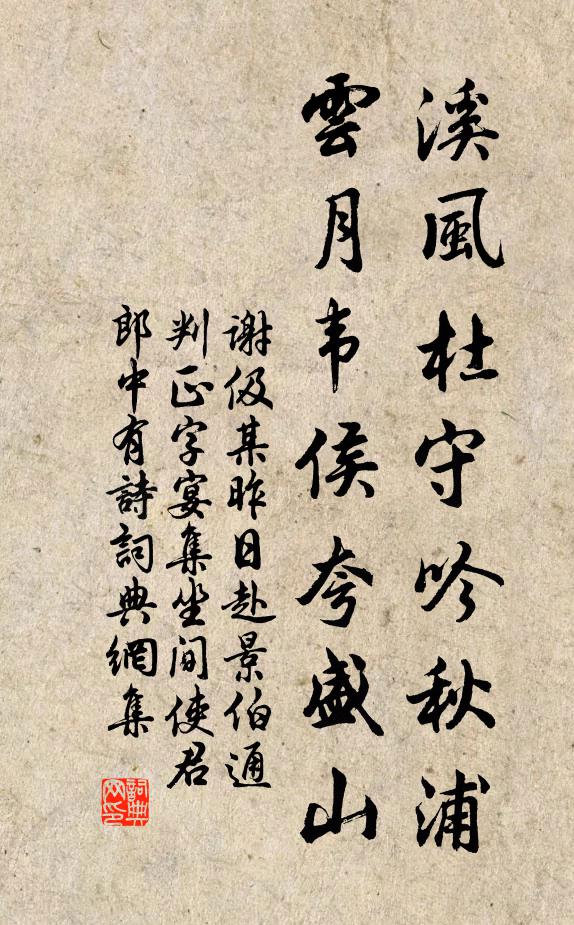 溪風杜守吟秋浦
雲月韦侯夸盛山
谢伋某昨日赴景伯通
判正字宴集坐间使君
郎中有詩詞典網集
詞典网印